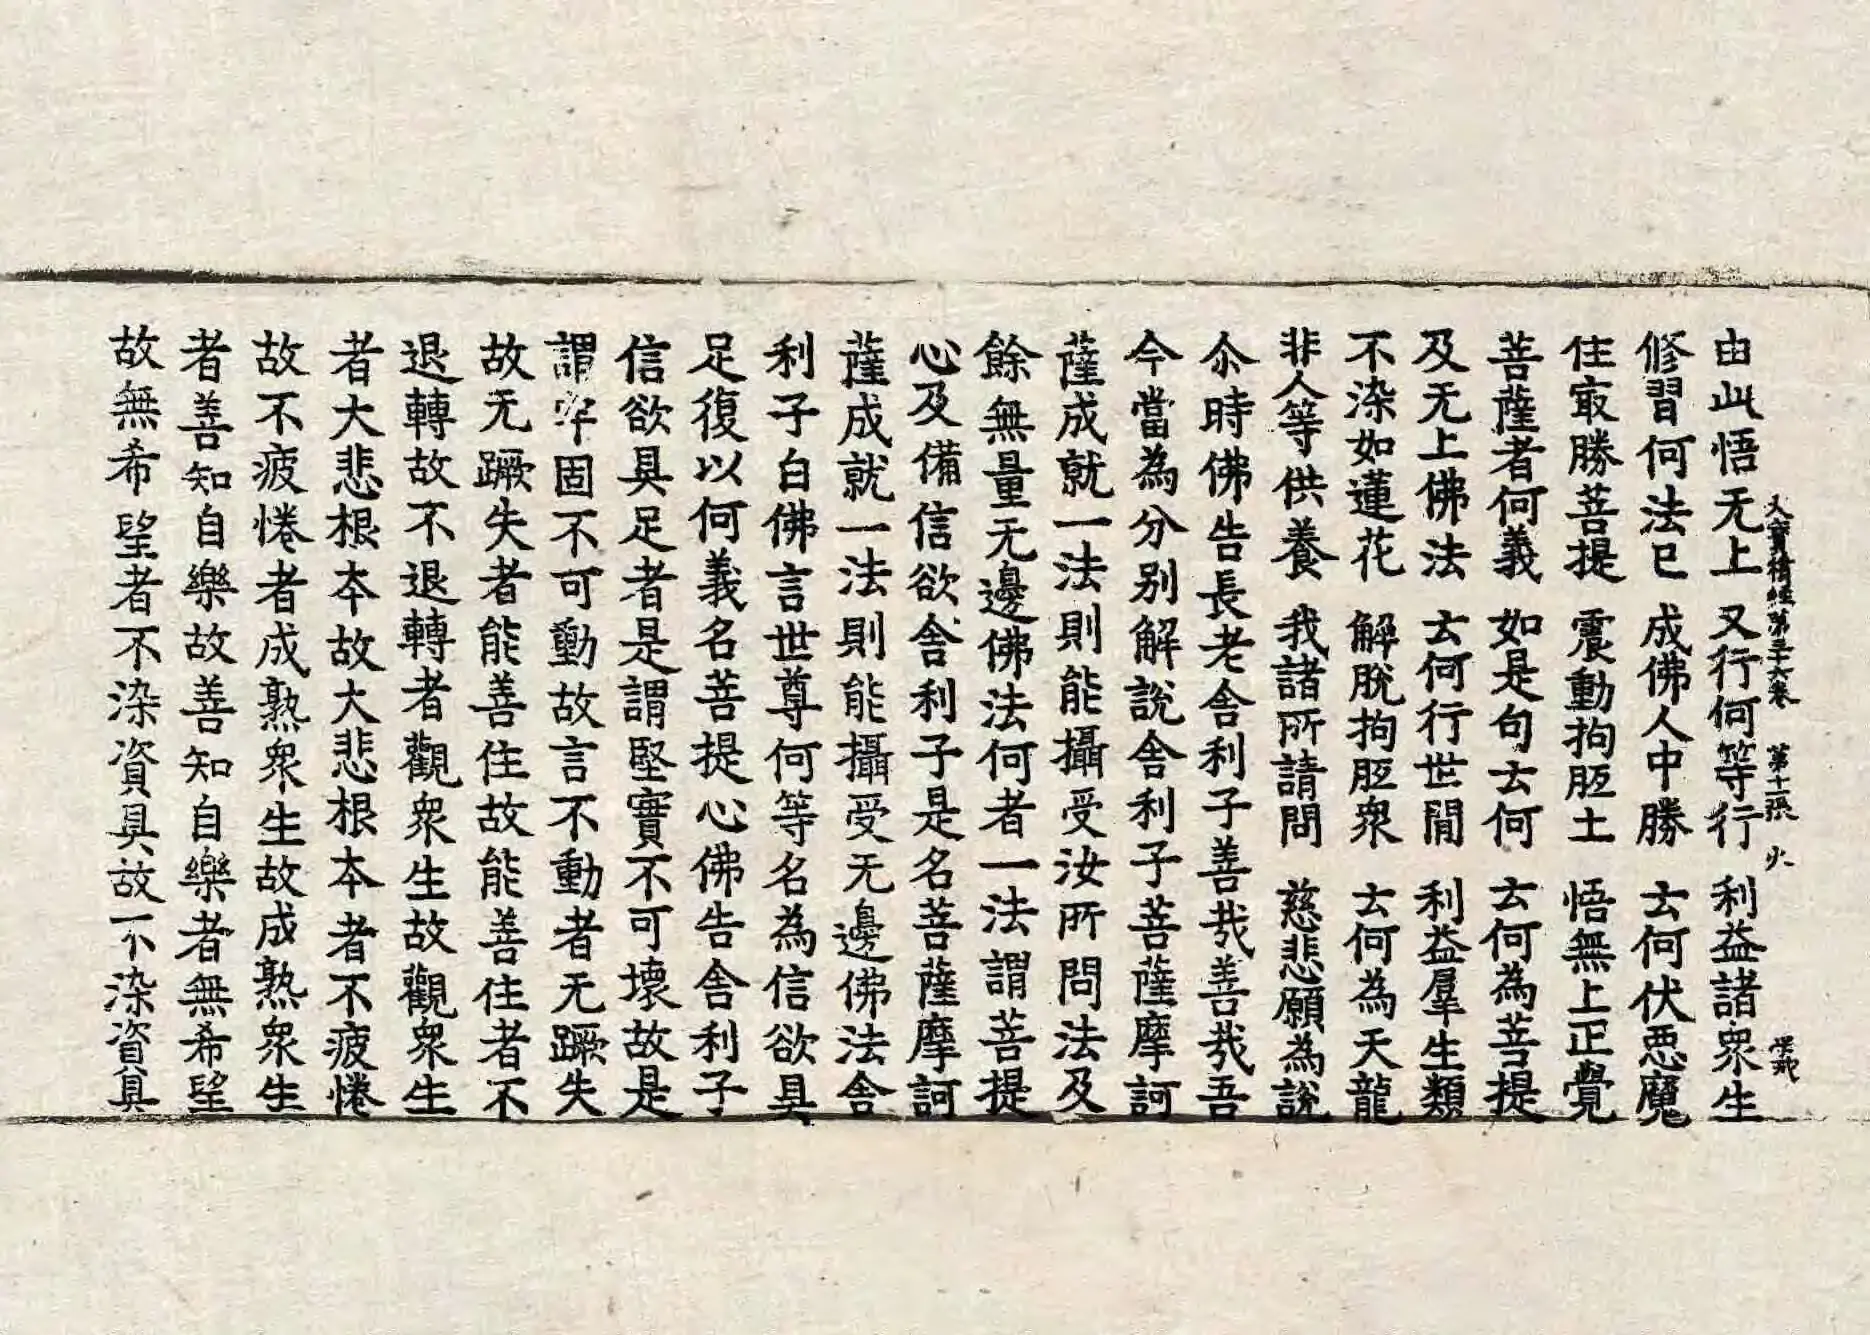 大寶積經第三十六卷 第十一張 火
由此悟无上 又行何等行 利益諸衆生
修習何法已 成佛人中勝 去何伏悪魔
住㝡勝菩提 震動拘胝土 悟無上正覺
菩薩者何義 如是句去何 去何為菩提
及无上佛法 去何行世間 利益羣生類
不染如蓮花 解脫拘胝衆 去何為天龍
非人等供養 我諸所請問 慈悲願為說
尒時佛告長老舍利子善哉善哉吾
今當為分別解說舍利子菩薩摩訶
薩成就一法則能攝受汝所問法及
餘無量无邊佛法何者一法謂菩提
心及備信欲舍利子是名菩薩摩訶
薩成就一法則能攝受无邊佛法舍
利子白佛言世尊何等名為信欲具
足復以何義名菩提心佛告舍利子
信欲具足者是謂堅實不可壞故是
謂牢固不可動故言不動者无蹶失
故无蹶失者能善住故能善住者不
退轉故不退轉者觀衆生故觀衆生
者大悲根本故大悲根本者不疲惓
故不疲惓者成熟衆生故成熟衆生
者善知自樂故善知自樂者無希望
故無希望者不染資具故不染資具